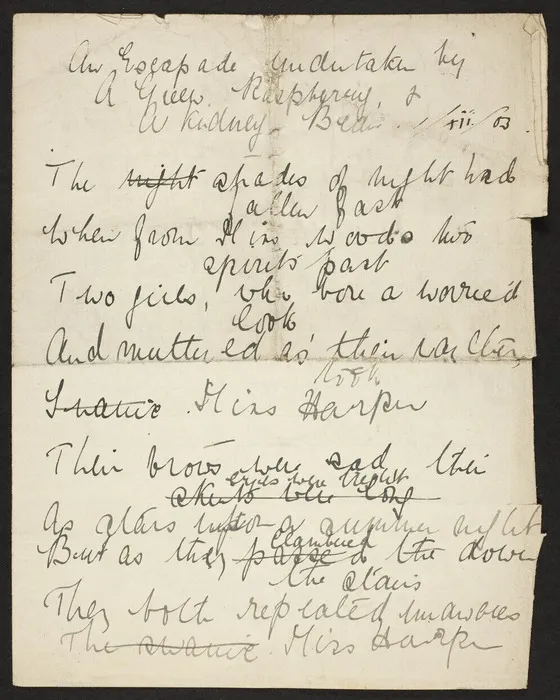 An Escapade undertaken by
A Green Raspberry, &
A Kidney Bean. 1/xii/03.
The night shades of night had
fallen fast
When from Miss Woods two
spirits past
Two girls, who bore a worried
look
And muttered as their way they
took
Miss Harper
Their brows were sad their
eyes were bright
skirts were long
As stars upon a summer night
But as they clambered
passed the down
the stairs
They both repeated unawares
The Miss Harper